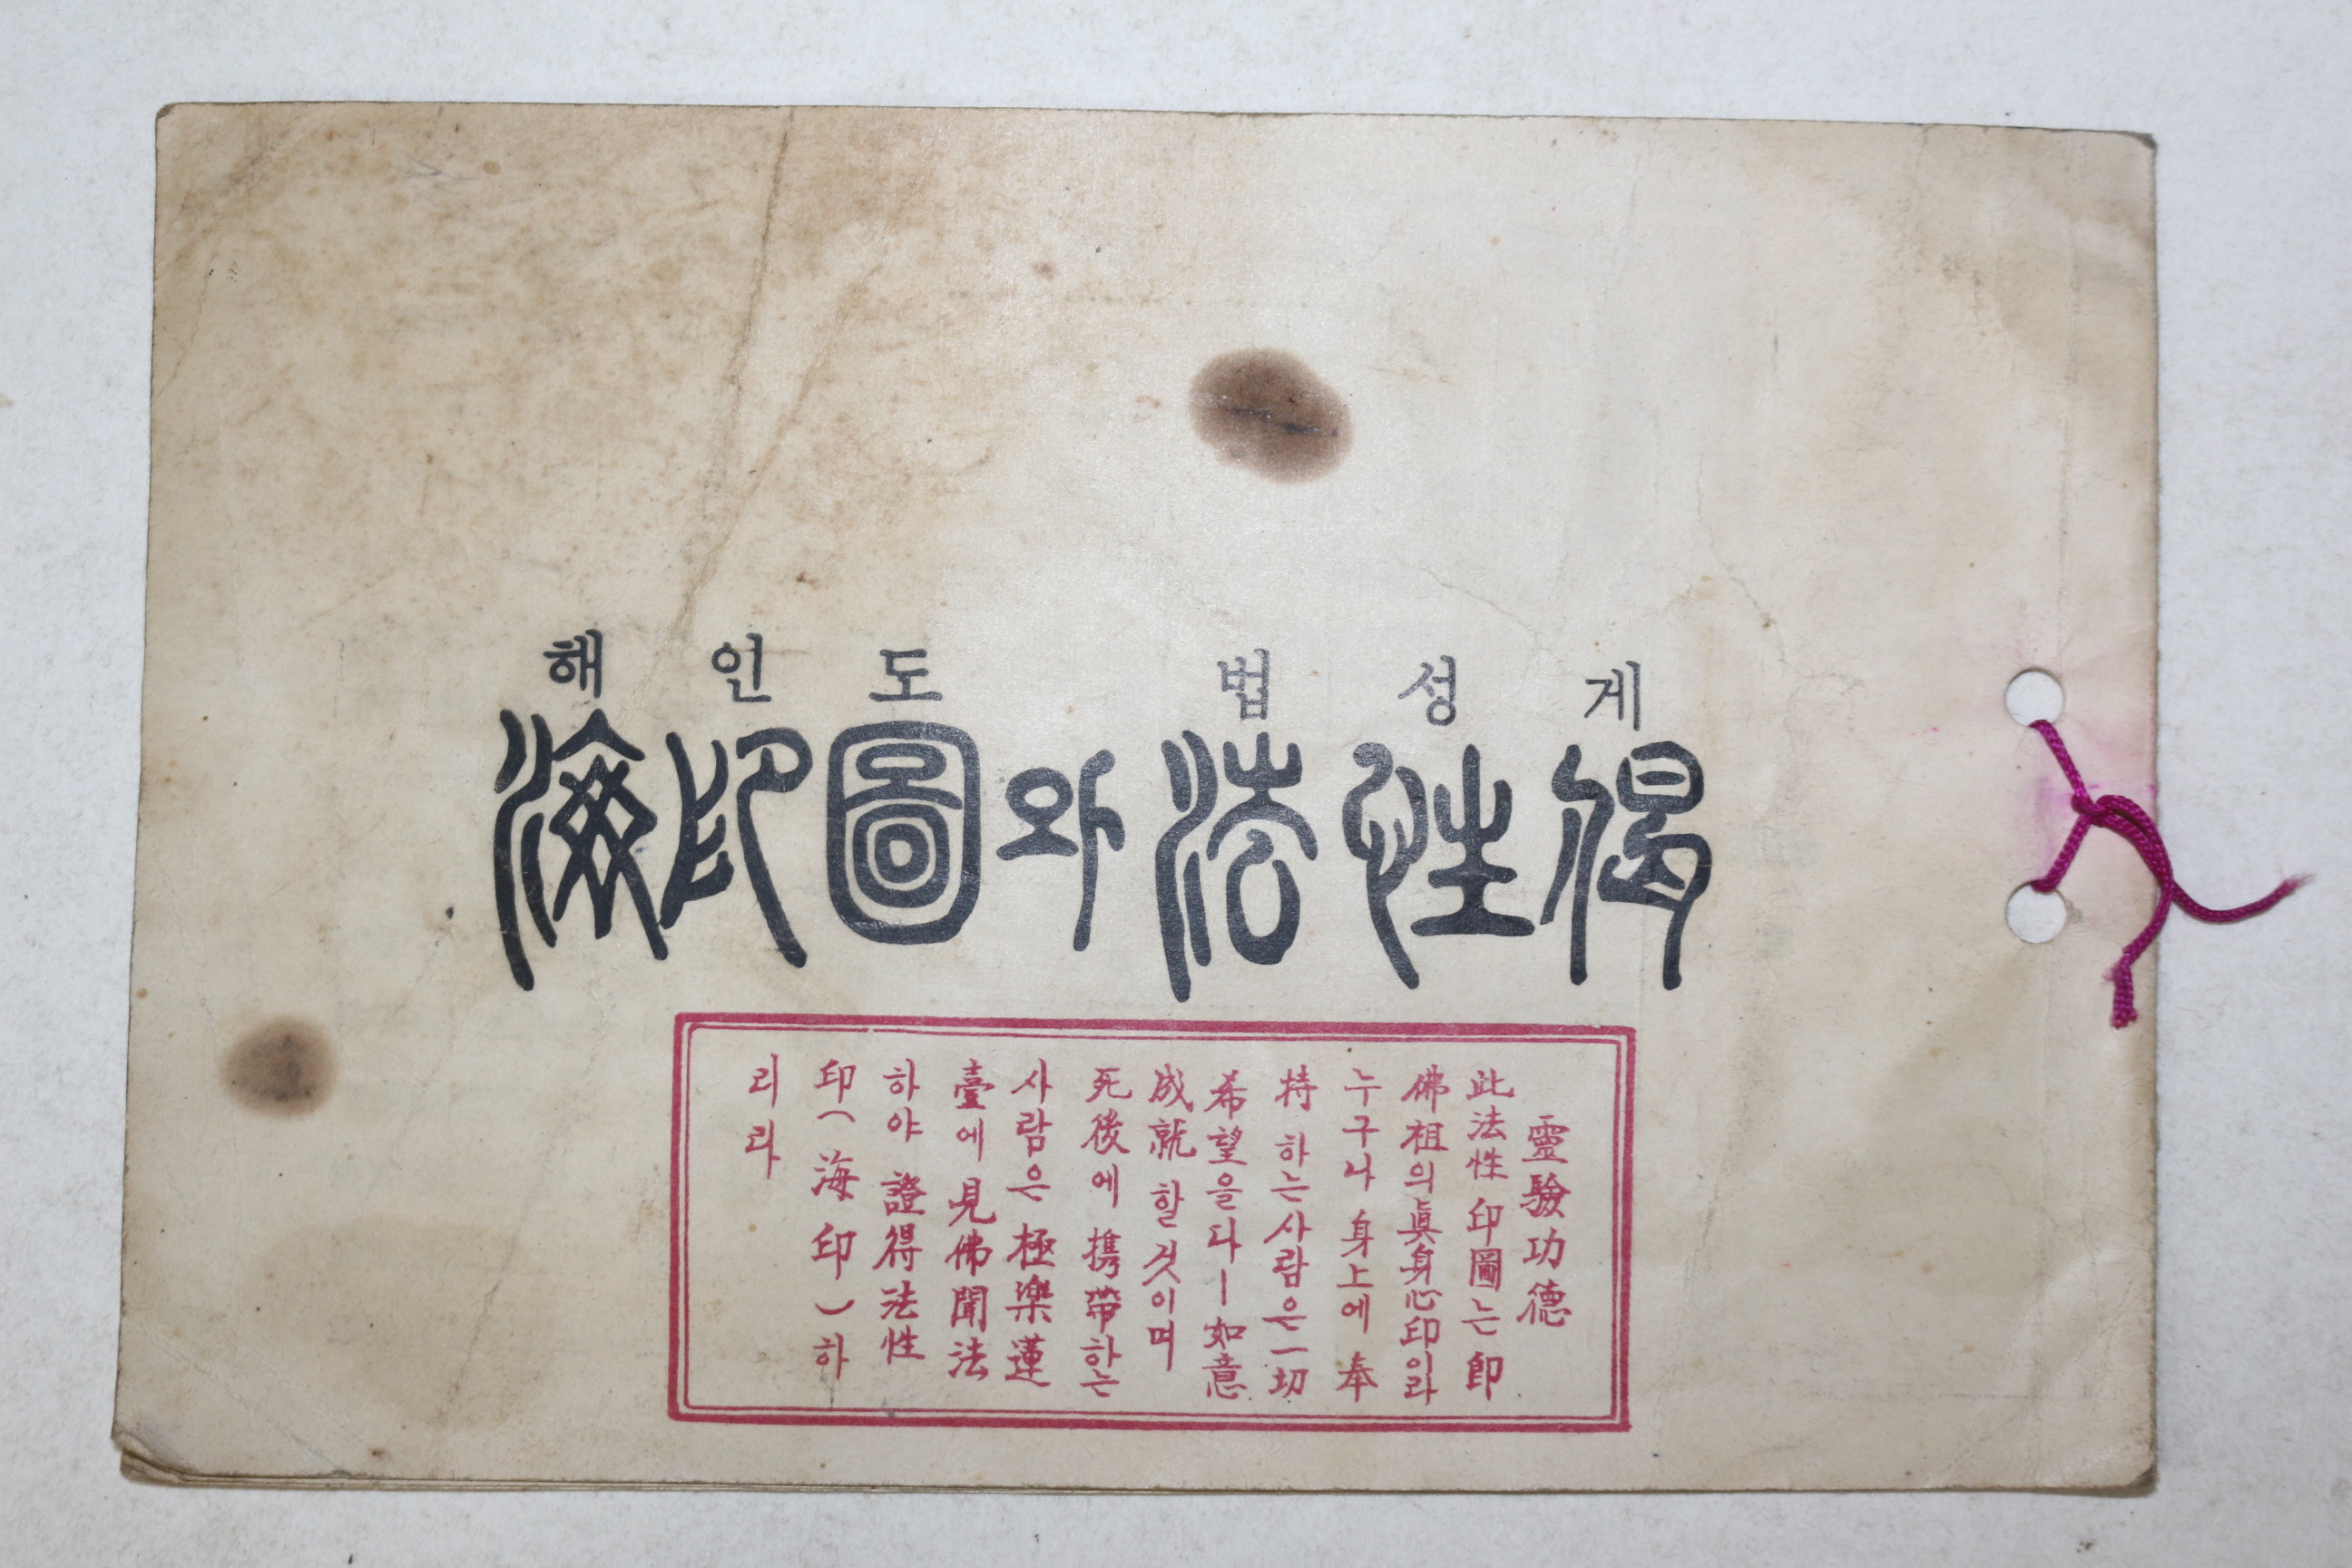 해 인 도 법 성 게
海印圖와 法性偈
靈驗功德
此法性印圖는 卽
佛祖의 眞身心印이라
누구나 身上에 奉
持하는 사람은 一切
希望을 다ㅣ 如意
成就할 것이며
死後에 携帶하는
사람은 極樂蓮
臺에 見佛聞法
하야 證得法性
印(海印)하
리라